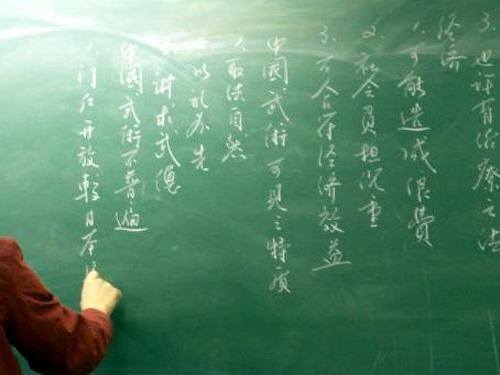 3.也許有治療方法
經濟
1.可能造成浪費
2.社會負担沉重
3.不合符經濟效益
中國武術可見之特质
1.取法自然
2.以礼為先
3.讲求武德
中國武術不普遍
1.门户开放較日本